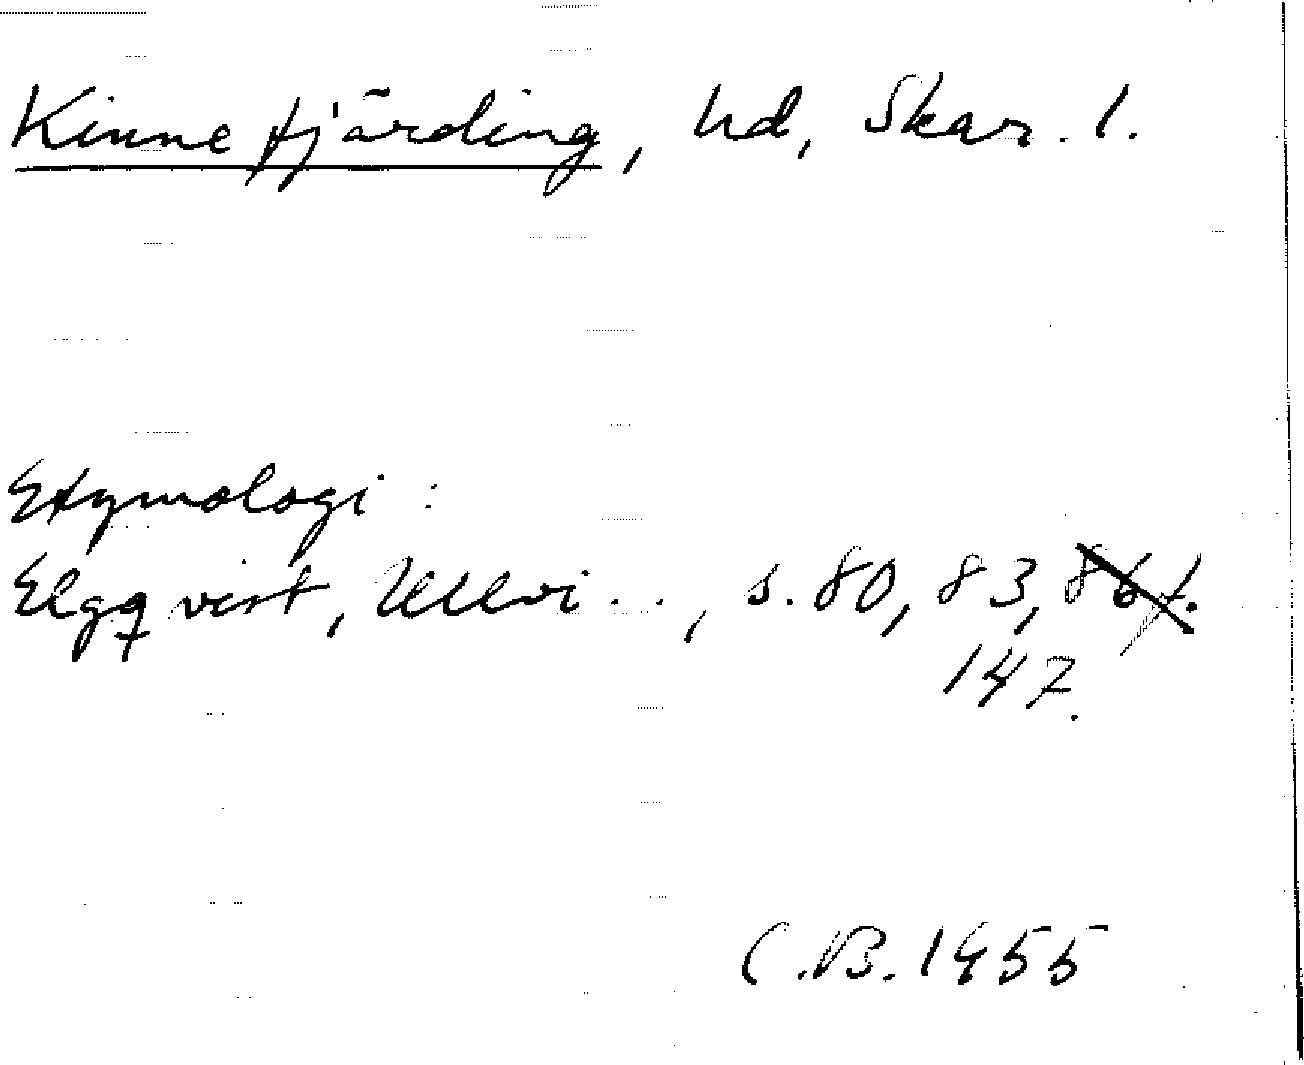 Kinnefjärding, hd, Skar. l.
Etymologi:
Elgqvist, Ullvi..., s. 80, 83, 86f.
147.
C.B. 1955